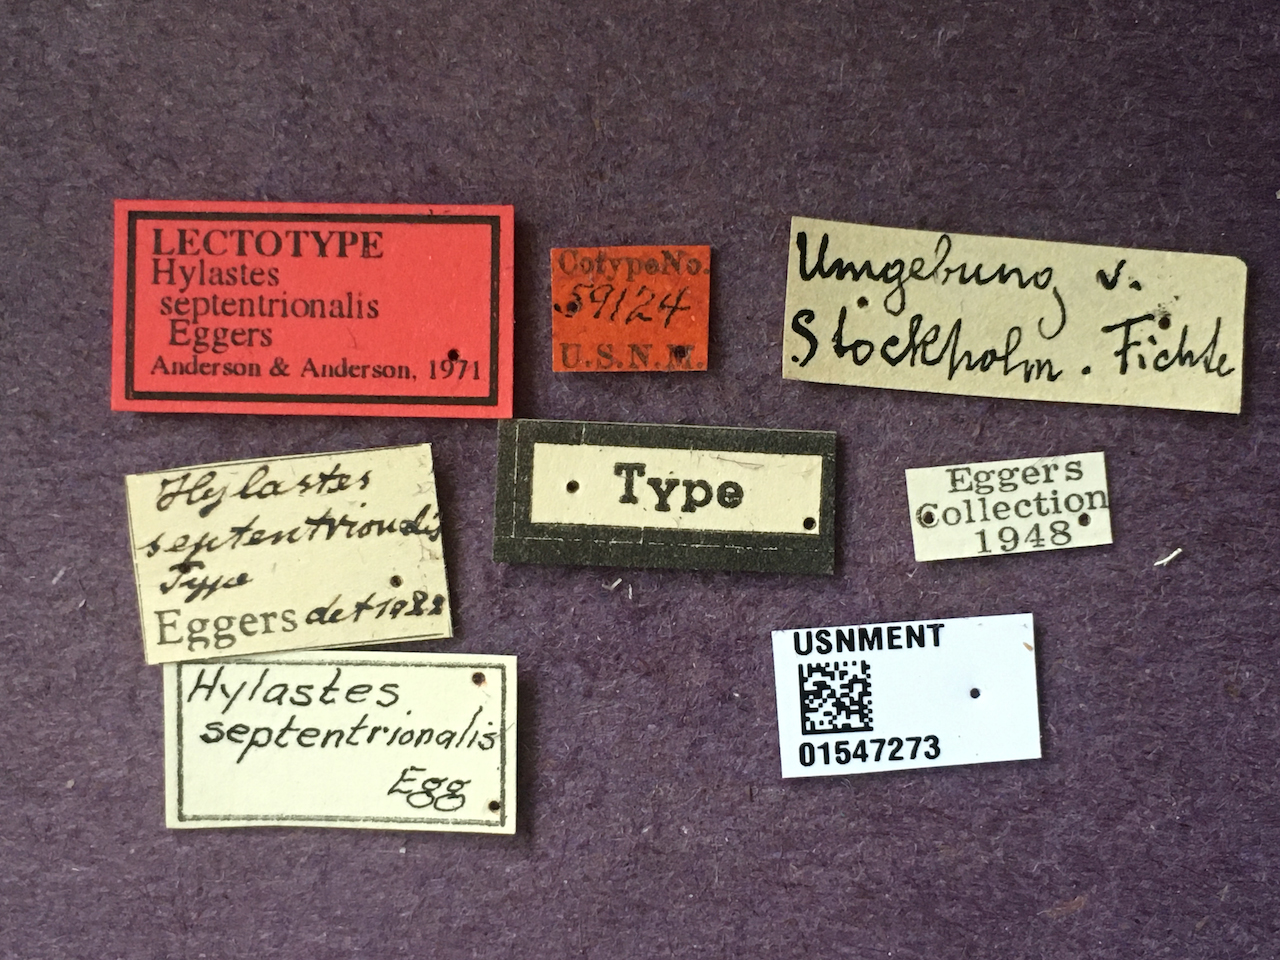 LECTOTYPE
Hylastes
septentrionalis
Eggers
Anderson & Anderson, 1971
CotypeNo.
59124
U.S.N.M.
Umgebung v.
Stockholm. Fichte
Hylastes
septentrionalis
Type
Eggers det 1922
Type
Eggers
Collection
1948
Hylastes
septentrionalis
Egg
USNMENT
01547273